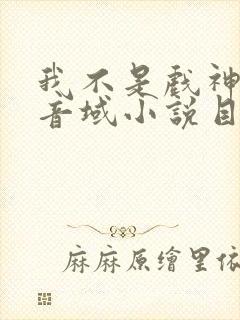 我不是戲神
音域小說目
麻麻原繪里依